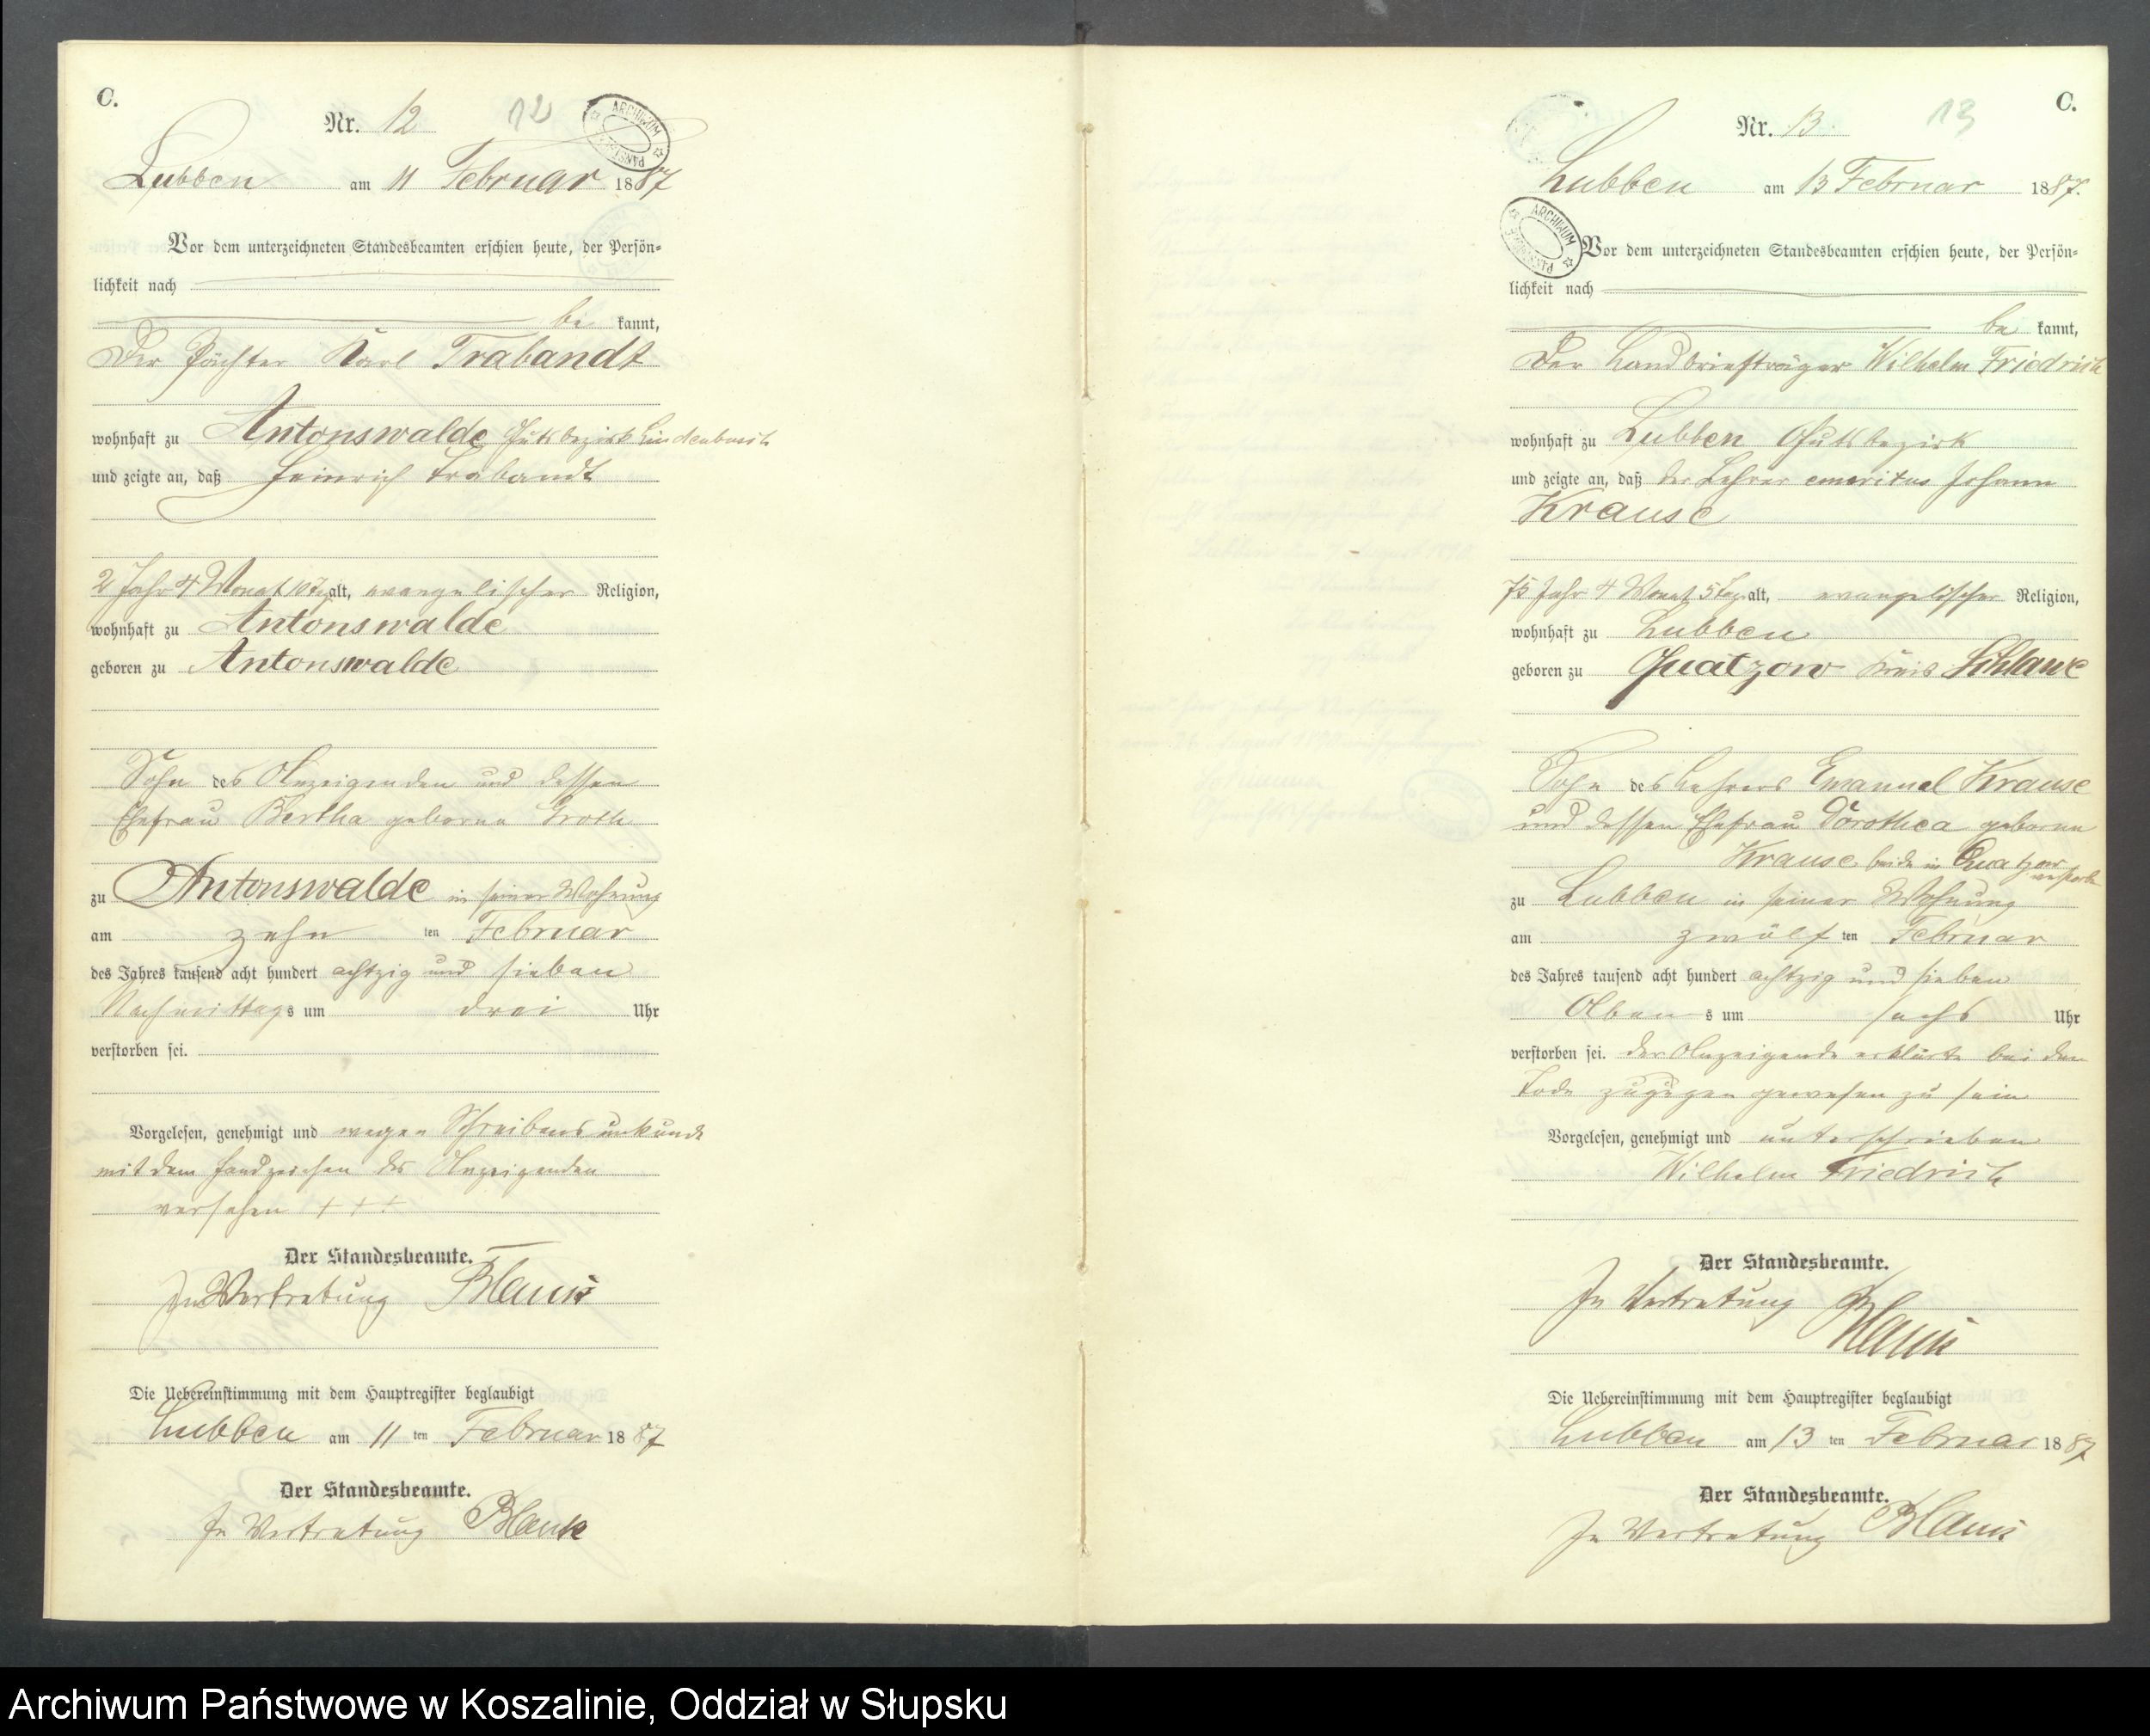 C.
Nr. 12
12
ARCHIWUM PAŃST
Lubben am 11 Februar 1887
Vor dem unterzeichneten Standesbeamten erschien heute, der Persön-
lichkeit nach
be kannt,
Der Pächter Karl Trabandt
wohnhaft zu Antonswalde Gutsbezirk Lindenbusch
und zeigte an, daß Heinrich Trabandt
2 Jahr 4 Monat 10 Tg alt, evangelischer Religion,
wohnhaft zu Antonswalde
geboren zu Antonswalde
Sohn des Anzeigenden und dessen
Ehefrau Bertha geborne Groth
zu Antonswalde in seiner Wohnung
am zehn ten Februar
des Jahres tausend acht hundert achtzig und sieben
Nachmittags um drei Uhr
verstorben sei.
Vorgelesen, genehmigt und wegen Schreibensunkunde
mit dem Handzeichen des Anzeigenden
versehen + + +
Der Standesbeamte.
In Vertretung Blank
Die Uebereinstimmung mit dem Hauptregister beglaubigt
Lubben am 11 ten Februar 1887
Der Standesbeamte.
In Vertretung Blank
C.
Nr. 13.
13
Lubben am 13 Februar 1887.
ARCHIWUM PAŃST
Vor dem unterzeichneten Standesbeamten erschien heute, der Persön-
lichkeit nach
be kannt,
Der Landbriefträger Wilhelm Friedrich
wohnhaft zu Lubben Gutsbezirk
und zeigte an, daß der Lehrer emeritus Johann
Krause
75 Jahr 4 Monat 5 Tag alt, evangelischer Religion,
wohnhaft zu Lubben
geboren zu Quatzow Kreis Schlawe
Sohn des Lehrers Emanuel Krause
und dessen Ehefrau Dorothea geborne
Krause beide in Quatzow verstorben
zu Lubben in seiner Wohnung
am zwölf ten Februar
des Jahres tausend acht hundert achtzig und sieben
Abens um sechs Uhr
verstorben sei. Der Anzeigende erklärte bei dem
Tode zugegen gewesen zu sein
Vorgelesen, genehmigt und unterschrieben
Wilhelm Friedrich
Der Standesbeamte.
In Vertretung
Blank
Die Uebereinstimmung mit dem Hauptregister beglaubigt
Lubben am 13 ten Februar 1887
Der Standesbeamte.
In Vertretung Blank
Archiwum Państwowe w Koszalinie, Oddział w Słupsku